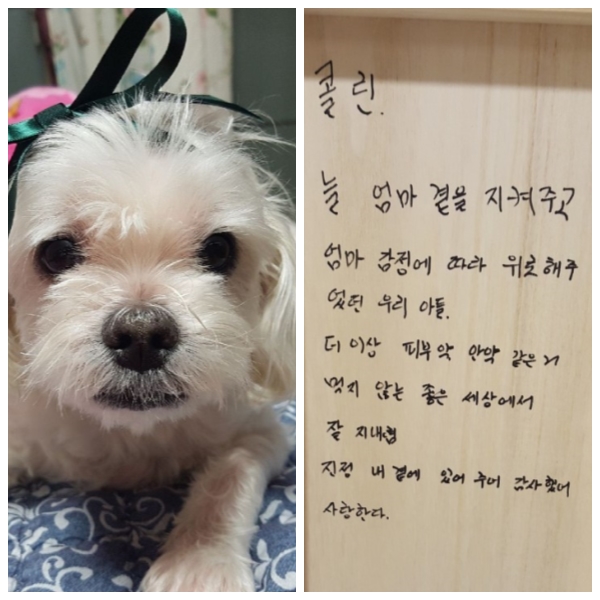 콜린.
늘 엄마 곁을 지켜주고
엄마 감정에 따라 위로해주
었던 우리 아들.
더 이상 피부약 안약 같은거
먹지 않는 좋은 세상에서
잘 지내렴
진정 내 곁에 있어 주어 감사했어
사랑한다.